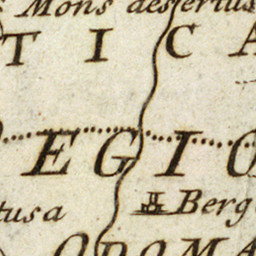 Mons desertus
TICA
EGIO
tusa
Berg
ODOMA